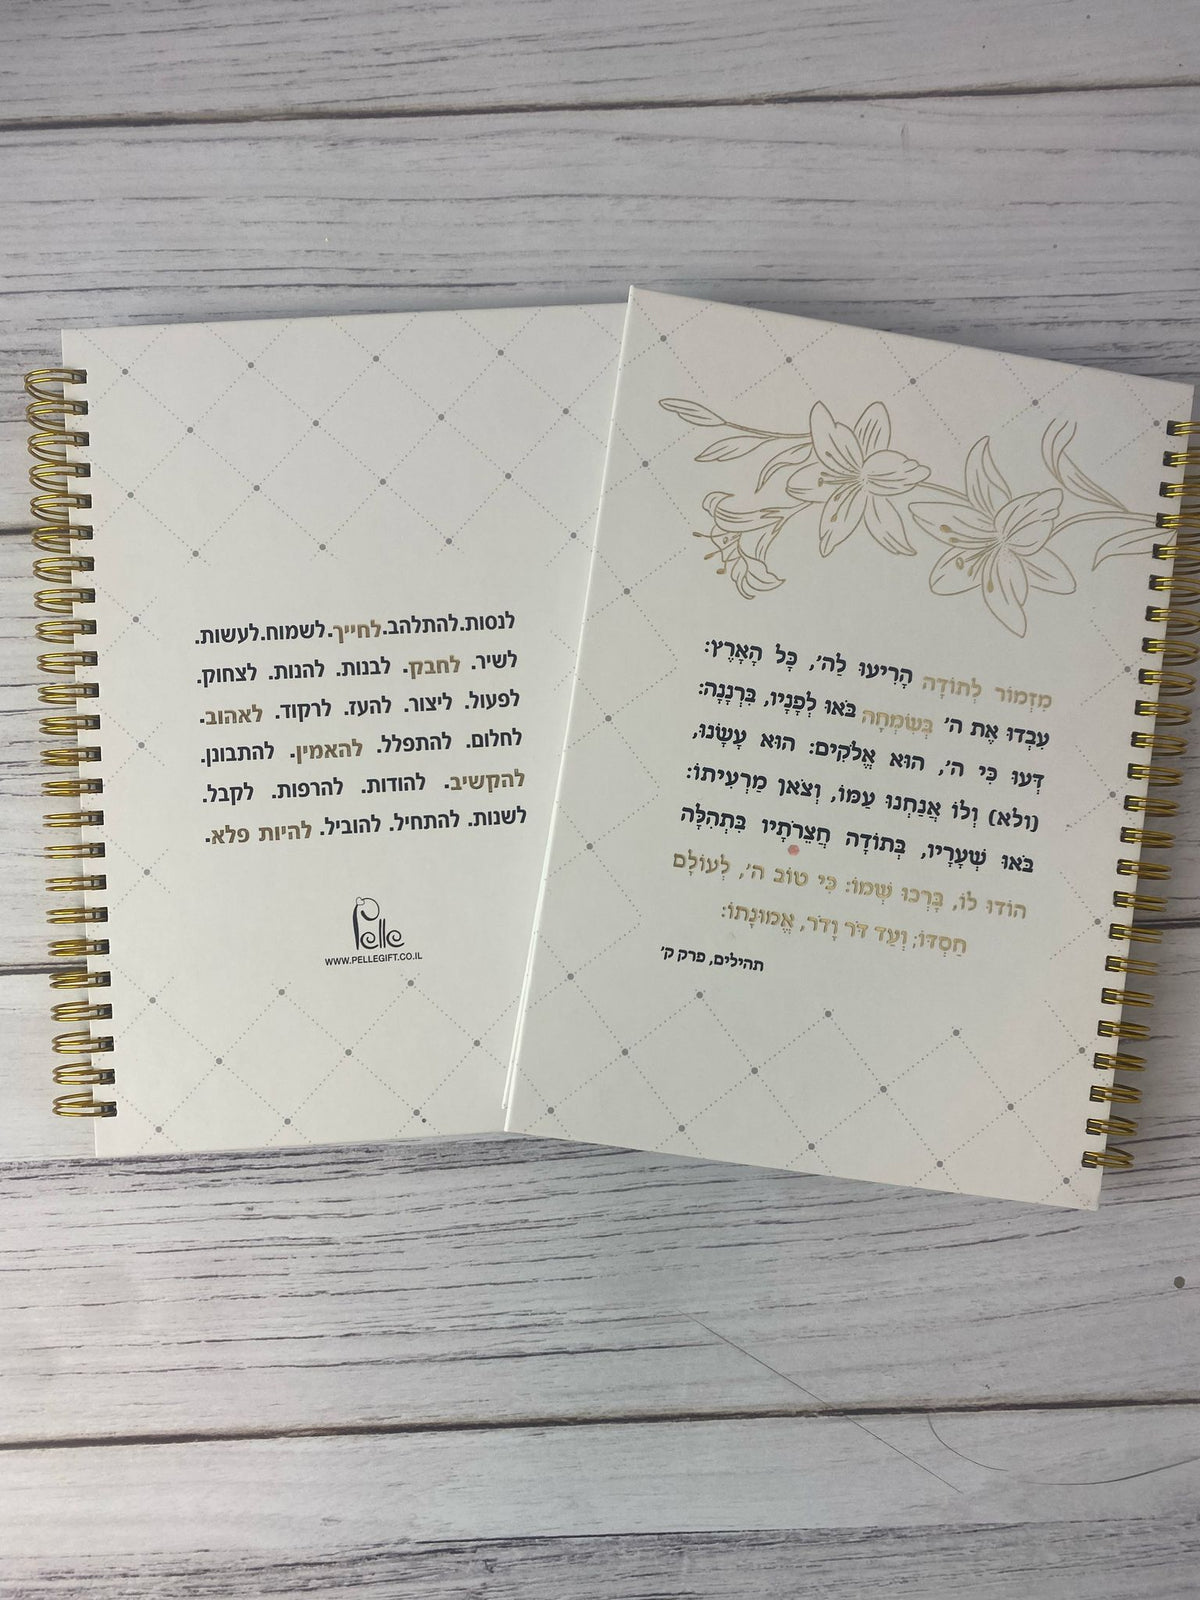 מִזְמוֹר לְתוֹדָה הָרִיעוּ לַה', כָּל הָאָרֶץ:
עִבְדוּ אֶת ה' בְּשִׂמְחָה בֹּאוּ לְפָנָיו, בִּרְנָנָה:
דְּעוּ כִּי ה', הוּא אֱלֹקִים: הוּא עָשָׂנוּ,
(ולא) וְלוֹ אֲנַחְנוּ עַמּוֹ, וְצֹאן מַרְעִיתוֹ:
בֹּאוּ שְׁעָרָיו, בְּתוֹדָה חֲצֵרֹתָיו בִּתְהִלָּה
הוֹדוּ לוֹ, בָּרְכוּ שְׁמוֹ: כִּי טוֹב ה', לְעוֹלָם
חַסְדּוֹ; וְעַד דֹּר וָדֹר, אֱמוּנָתוֹ:
תהילים, פרק ק'
לנסות.להתלהב.לחייך.לשמוח.לעשות.
לשיר. לחבק. לבנות. להנות. לצחוק.
לפעול. ליצור. להעז. לרקוד. לאהוב.
לחלום. להתפלל. להאמין. להתבונן.
להקשיב. להודות. להרפות. לקבל.
לשנות. להתחיל. להוביל. להיות פלא.
Pelle
WWW.PELLEGIFT.CO.IL